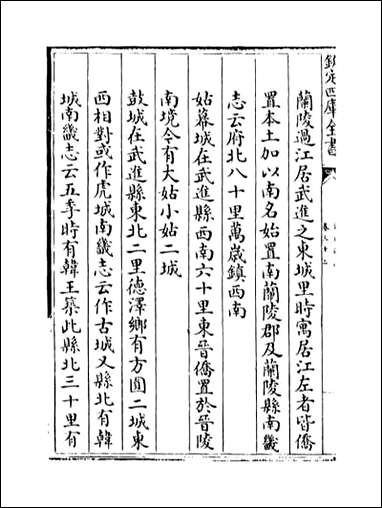 欽定四庫全書
蘭陵過江居武進之東城里時寓居江左者皆僑
置本土加以南名始置南蘭陵郡及蘭陵縣南畿
志云府北八十里萬歲鎮西南
姑幕城在武進縣西南六十里東晉僑置於晉陵
南境今有大姑小姑二城
鼓城在武進縣東北二里德澤鄉有方圓二城東
西相對或作虎城南畿志云作古城又縣北有韓
城南畿志云五季時有韓王築此縣北三十里有